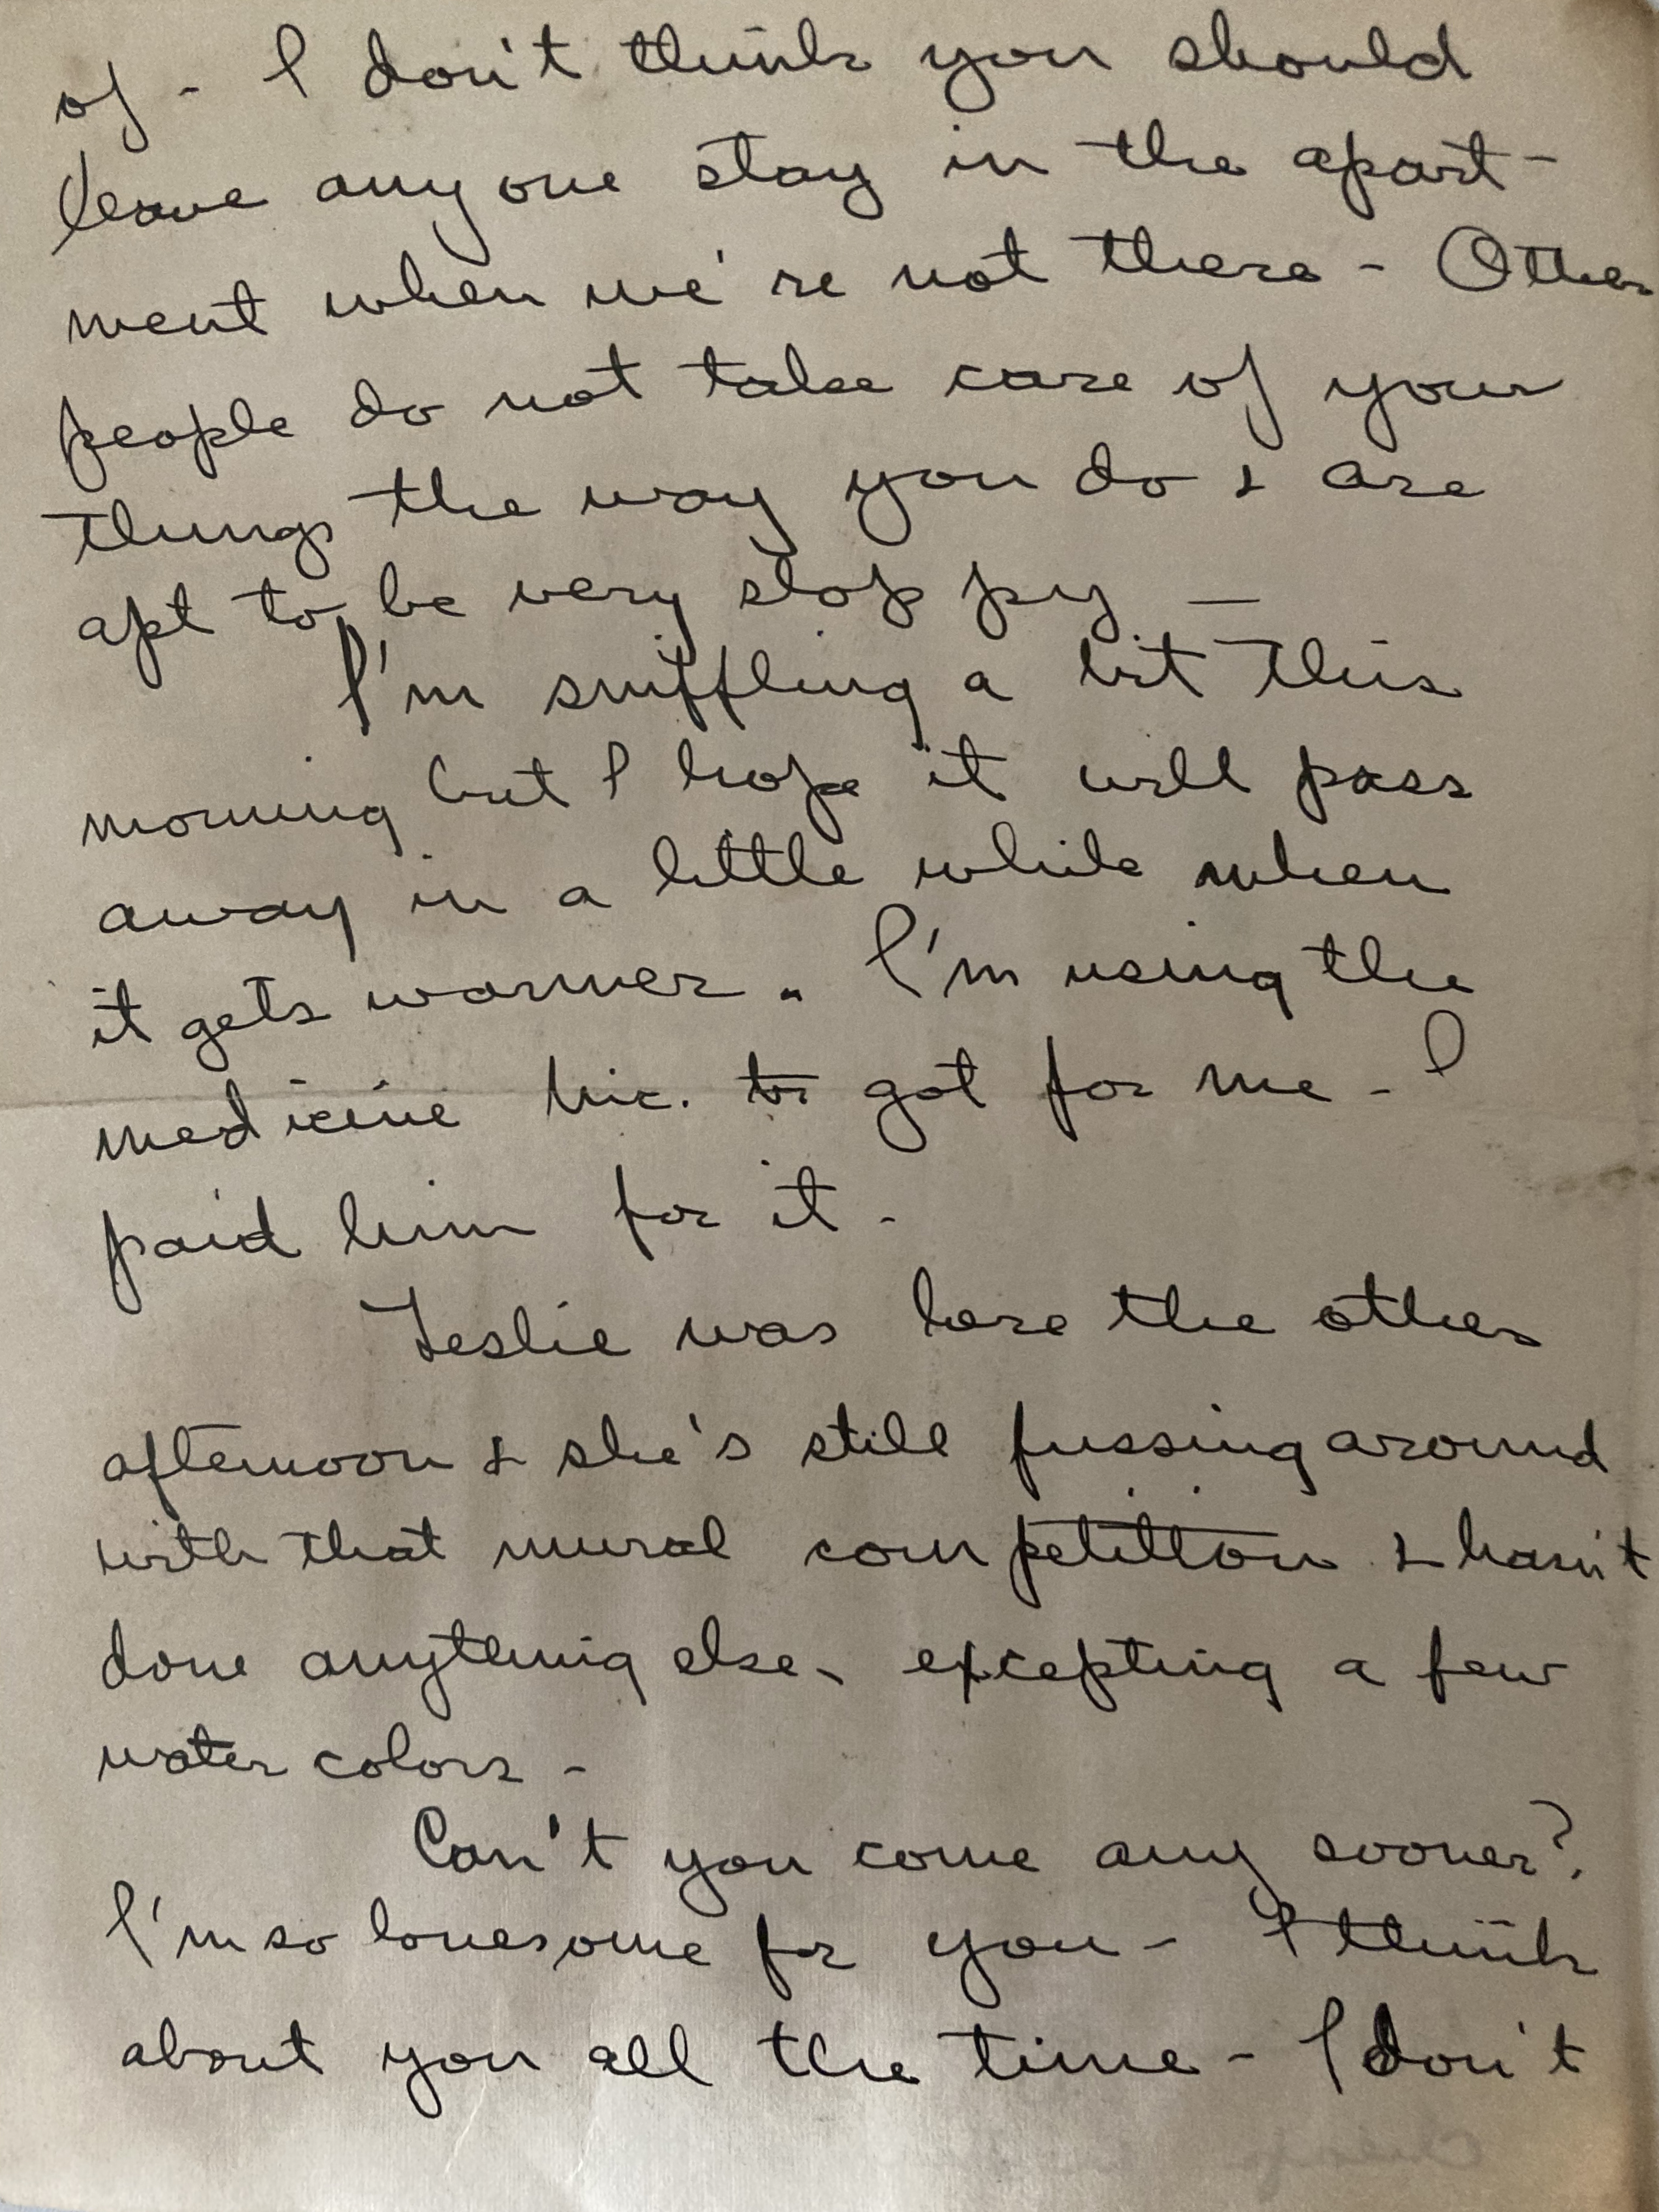 of - I don't think you should
leave anyone stay in the apart-
ment when we're not there - Other
people do not take care of your
things the way you do & are
apt to be very sloppy —
I'm sniffling a bit this
morning but I hope it will pass
away in a little while when
it gets warmer. I'm using the
medicine Nic. to got for me - I
paid him for it -
Leslie was here the other
afternoon & she's still fussing around
with that mural competition & hasn't
done anything else, excepting a few
water colors -
Can't you come any sooner?
I'm so lonesome for you - I think
about you all the time - I don't